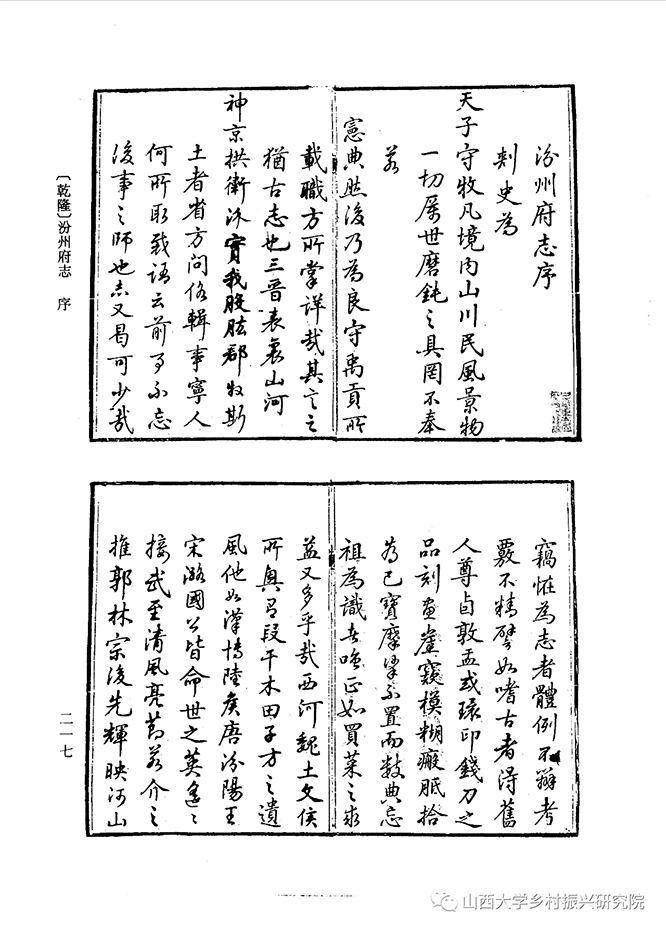 汾州府志序
刺史為
天子守牧凡境内山川民風景物
一切厲世磨鈍之具罔不奉
若
憲典然後乃為良守禹貢所
載職方所掌詳哉其言之
猶古志也三晉表裏山河
神京拱衛汾實我股肱郡牧斯
土者省方問俗輯事寧人
何所取裁語云前事不忘
後事之師也志又曷可少哉
〔乾隆〕汾州府志 序
竊恠為志者體例不辯考
覈不精譬如嗜古者得舊
人尊卣敦盂或環印錢刀之
品刻畫窾模糊瘢胝拾
為已寶摩挲不置而數典忘
祖為識者嗤正如買菜之求
益又多乎哉西河魏土文侯
所興有段干木田子方之遺
風他如漢博陸侯唐汾陽王
宋潞國公皆命世之英遙〻
接武至清風亮節若介之
推郭林宗後先輝映河山
二一七
山西大学乡村振兴研究院